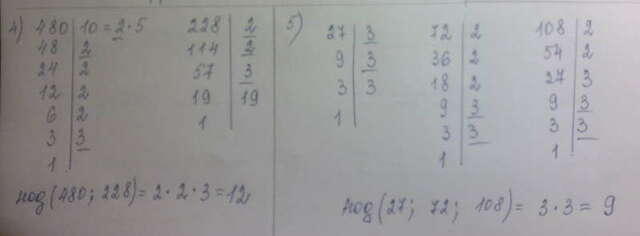 4) 480 | 10 = 2·5
48 | 2
24 | 2
12 | 2
6 | 2
3 | 3
1
228 | 2
114 | 2
57 | 3
19 | 19
1
нод(480; 228) = 2·2·3 = 12
5) 27 | 3
9 | 3
3 | 3
1
72 | 2
36 | 2
18 | 2
9 | 3
3 | 3
1
108 | 2
54 | 2
27 | 3
9 | 3
3 | 3
1
нод(27; 72; 108) = 3·3 = 9